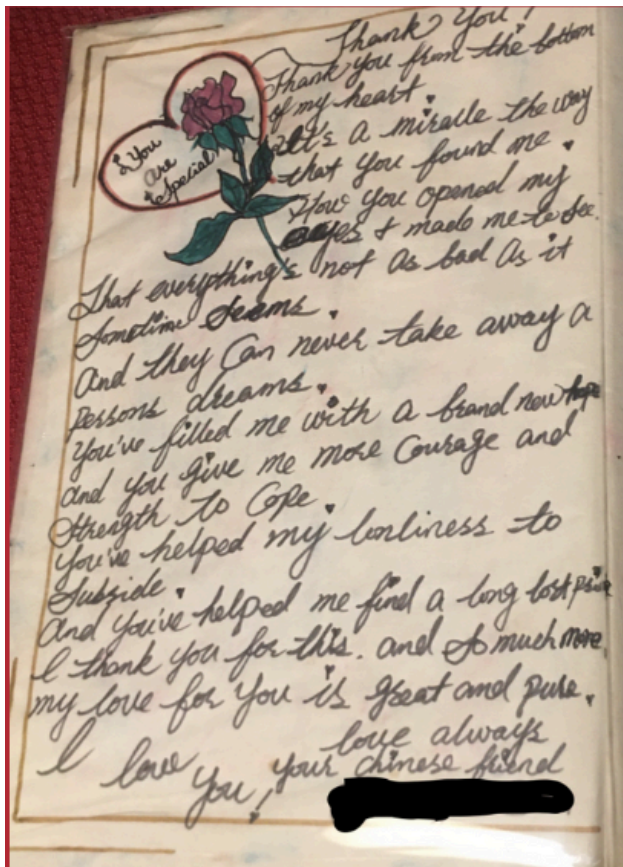 Thank You!
Thank you from the bottom
of my heart.
It's a miracle the way
that you found me.
How you opened my
eyes & made me to see.
You
are
Special
That everything's not as bad as it
sometime seems.
And they can never take away a
persons dreams.
You've filled me with a brand new hope
and you give me more courage and
strength to cope.
You've helped my lonliness to
subside.
And you've helped me find a long lost
I thank you for this. and so much more,
my love for you is great and pure.
I love you!
love always
your chinese friend